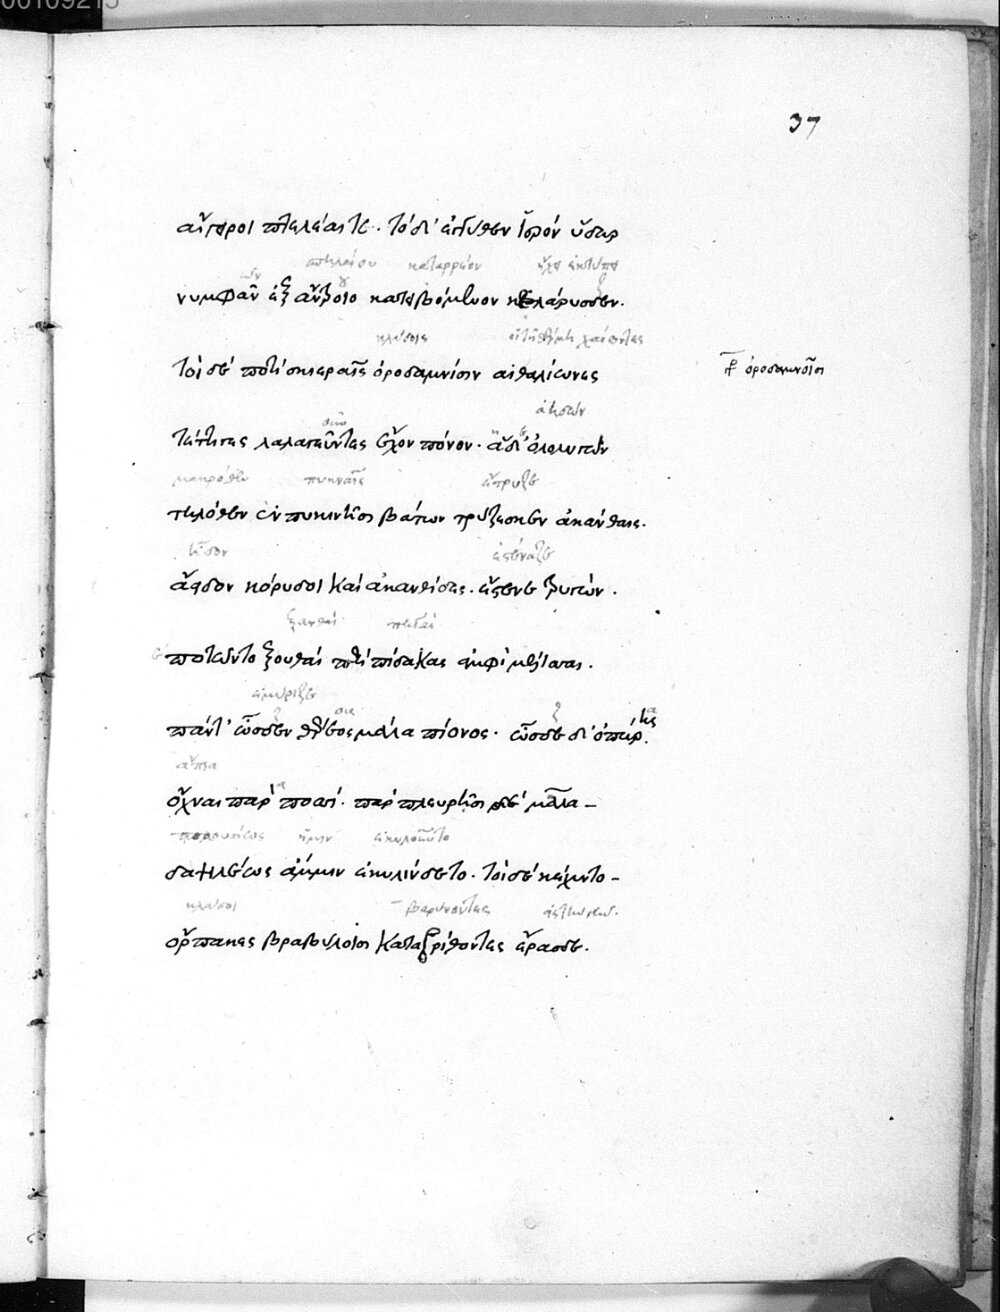 37
αἴγειροι πτελέαι τε. τὸ δ' ἐγγύθεν ἱερὸν ὕδωρ
σπηλαίου καταρρέον ἤχει ἐκτύπει
νυμφᾶν ἐξ ἄντροιο κατειβόμενον κελάρυσδεν.
κλάδοις
τοὶ δὲ ποτὶ σκιεραῖς ὀροδαμνίσιν αἰθαλίωνες
ὀροδαμνοῖσι
ἀηδών
τέττιγες λαλαγεῦντες ἔχον πόνον. ἁ δ' ὀλολυγὼν
μακρόθεν πυκναῖς ἔτρυζε
τηλόθεν ἐν πυκινῇσι βάτων τρύζεσκεν ἀκάνθαις.
ᾖδον ἐστέναζε
ἄειδον κόρυδοι καὶ ἀκανθίδες. ἔστενε τρυγών.
ξανθαὶ
πωτῶντο ξουθαὶ περὶ πίδακας ἀμφὶ μέλισσαι.
πάντ' ὦσδεν θέρεος μάλα πίονος. ὦσδε δ' ὀπώρης.
ἄπια
ὄχναι παρ' ποσὶ. παρ' πλευρῇσι δὲ μᾶλα
ἡμῖν ἐκυλοῦντο
δαψιλέως ἄμμιν ἐκυλίνδετο. τοὶ δ' ἐκέχυντο
κλάδοι βαρύνοντες
ὄρπακες βραβύλοισι καταβρίθοντες ἔρασδε.